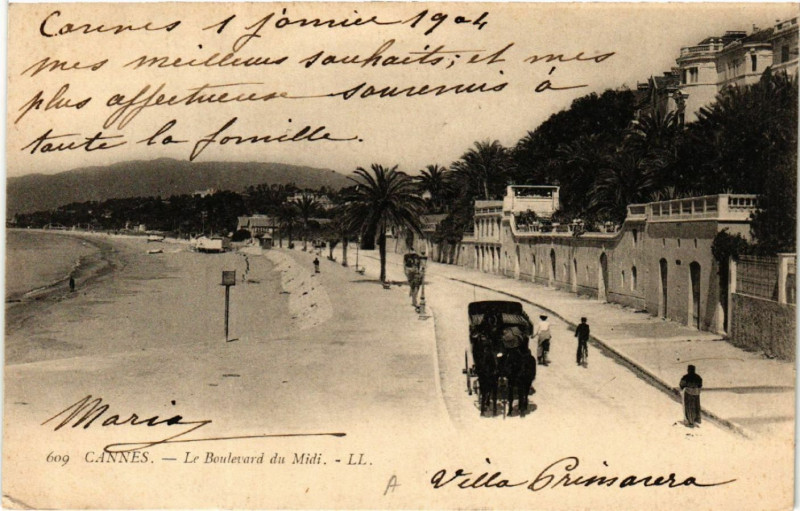 Cannes 1 janvier 1904
mes meilleurs souhaits; et mes
plus affectueuse souvenirs à
toute la famille.
Maria
609 CANNES. — Le Boulevard du Midi. - LL.
A
Villa Primavera